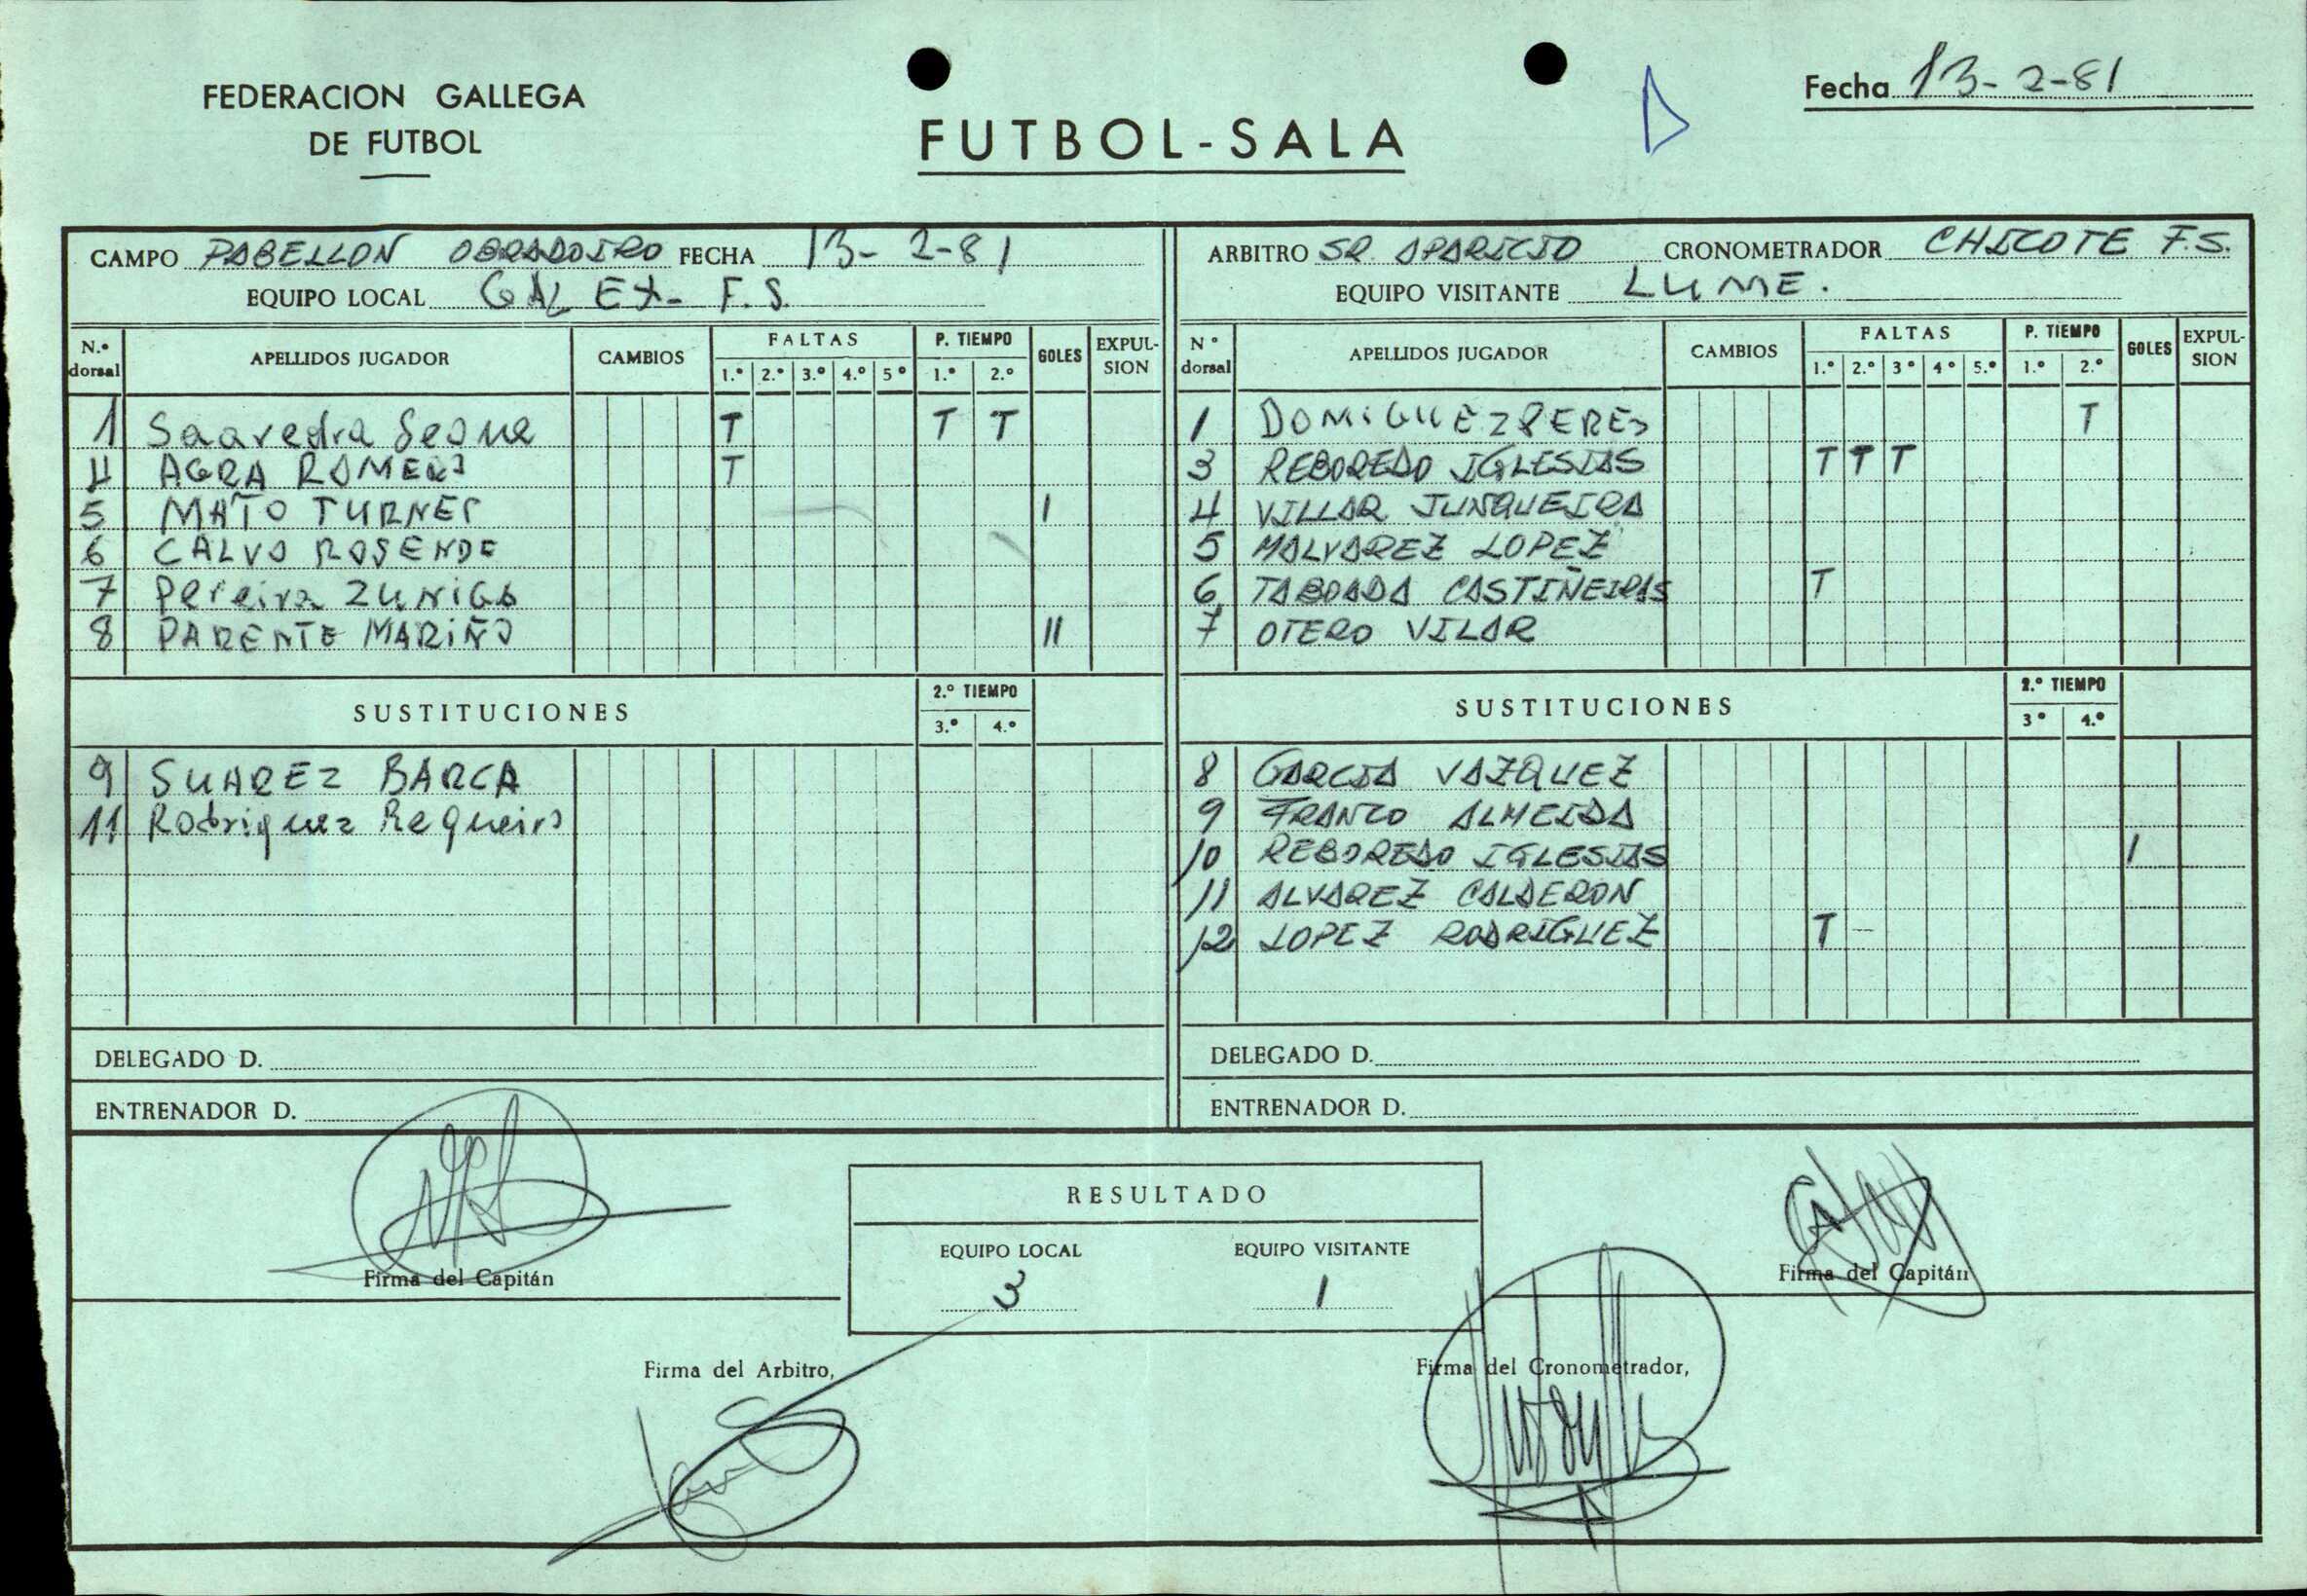 FEDERACION GALLEGA
DE FUTBOL
FUTBOL-SALA
Fecha 13-2-81
CAMPO PABELLON OBRADOIRO FECHA 13-2-81
EQUIPO LOCAL GALEX- F.S.
ARBITRO SR. APARICIO CRONOMETRADOR CHICOTE F.S.
EQUIPO VISITANTE LUME.
N.º dorsal APELLIDOS JUGADOR CAMBIOS FALTAS 1.º 2.º 3.º 4.º 5º P. TIEMPO 1.º 2.º GOLES EXPULSION
1 Saavedra Seone T T T
4 AGRA ROMERO T
5 MATO TURNES I
6 CALVO ROSENDE
7 Pereira ZUNIGA
8 PARENTE MARIÑO II
SUSTITUCIONES 2.º TIEMPO 3.º 4.º
9 SUAREZ BARCA
11 Rodriguez Requeiro
DELEGADO D.
ENTRENADOR D.
Nº dorsal APELLIDOS JUGADOR CAMBIOS FALTAS 1.º 2.º 3º 4º 5.º P. TIEMPO 1.º 2.º GOLES EXPULSION
1 DOMiGUEZ PERES T
3 REBOREDO IGLESIAS T T T
4 VILLAR JUNQUEIRA
5 MALVAREZ LOPEZ
6 TABOADA CASTIÑEIRAS T
7 OTERO VILAR
SUSTITUCIONES 2.º TIEMPO 3º 4.º
8 GARCIA VAZQUEZ
9 FRANCO ALMEIDA
10 REBOREDO IGLESIAS I
11 ALVAREZ CALDERON
12 LOPEZ RODRIGUEZ T
DELEGADO D.
ENTRENADOR D.
Firma del Capitán
RESULTADO
EQUIPO LOCAL EQUIPO VISITANTE
3 1
Firma del Capitán
Firma del Arbitro,
Firma del Cronometrador,